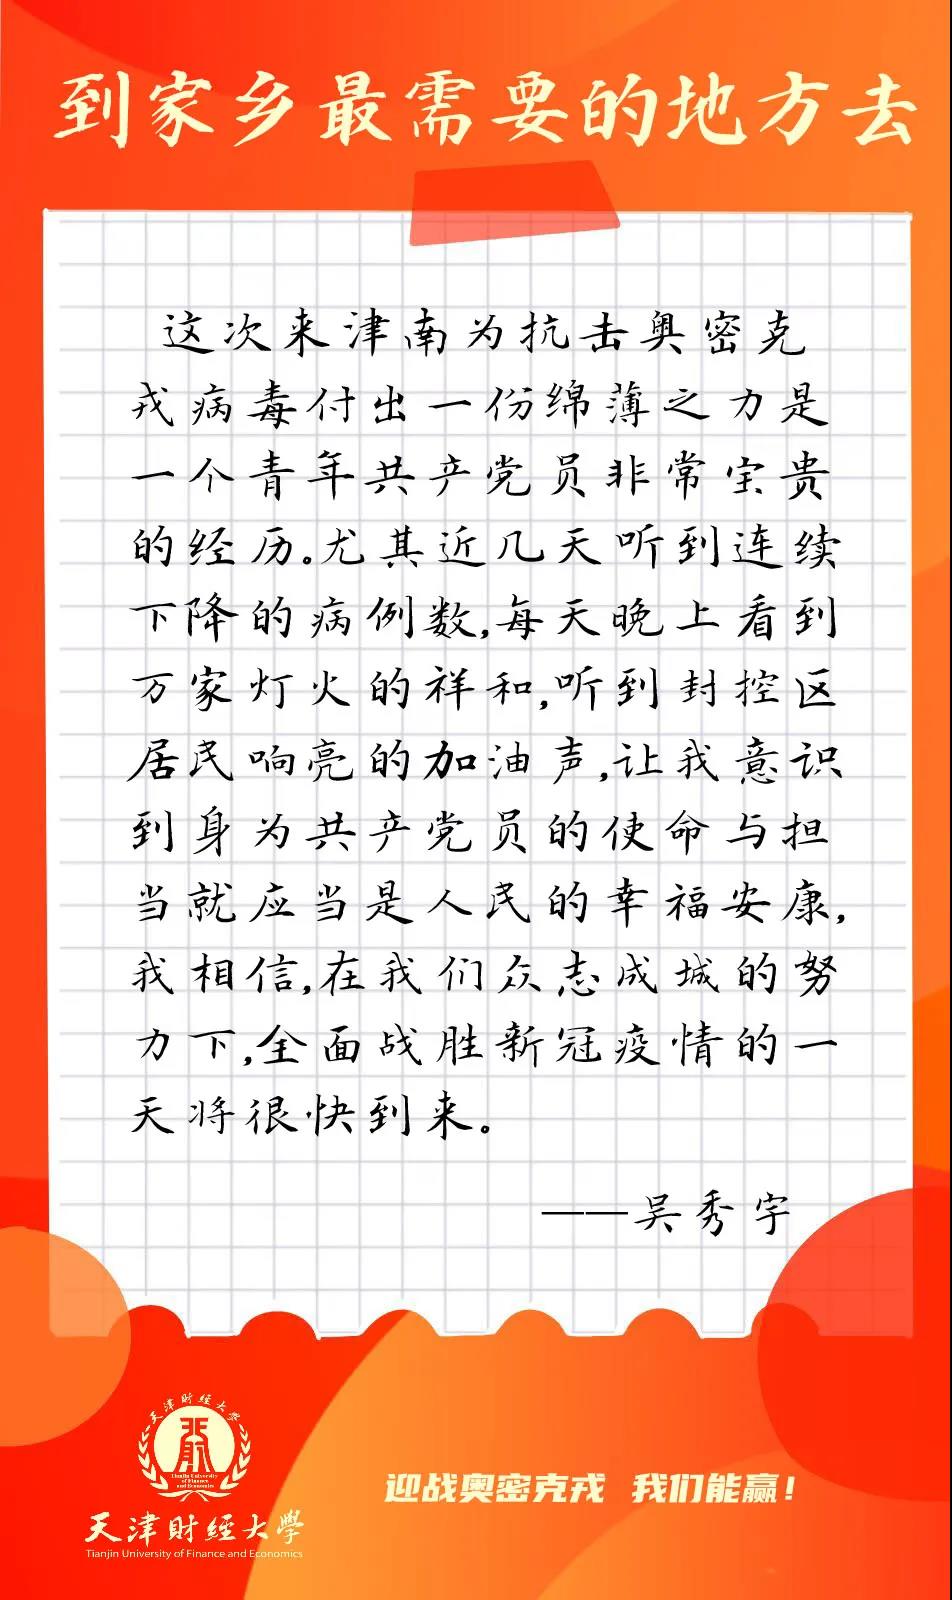 到家乡最需要的地方去
这次来津南为抗击奥密克
戎病毒付出一份绵薄之力是
一个青年共产党员非常宝贵
的经历。尤其近几天听到连续
下降的病例数,每天晚上看到
万家灯火的祥和,听到封控区
居民响亮的加油声,让我意识
到身为共产党员的使命与担
当就应当是人民的幸福安康,
我相信,在我们众志成城的努
力下,全面战胜新冠疫情的一
天将很快到来。
——吴秀宇
天津财经大學
Tianjin University
of Finance
and Economics
天津财經大學
Tianjin University of Finance and Economics
迎战奥密克戎 我们能赢!